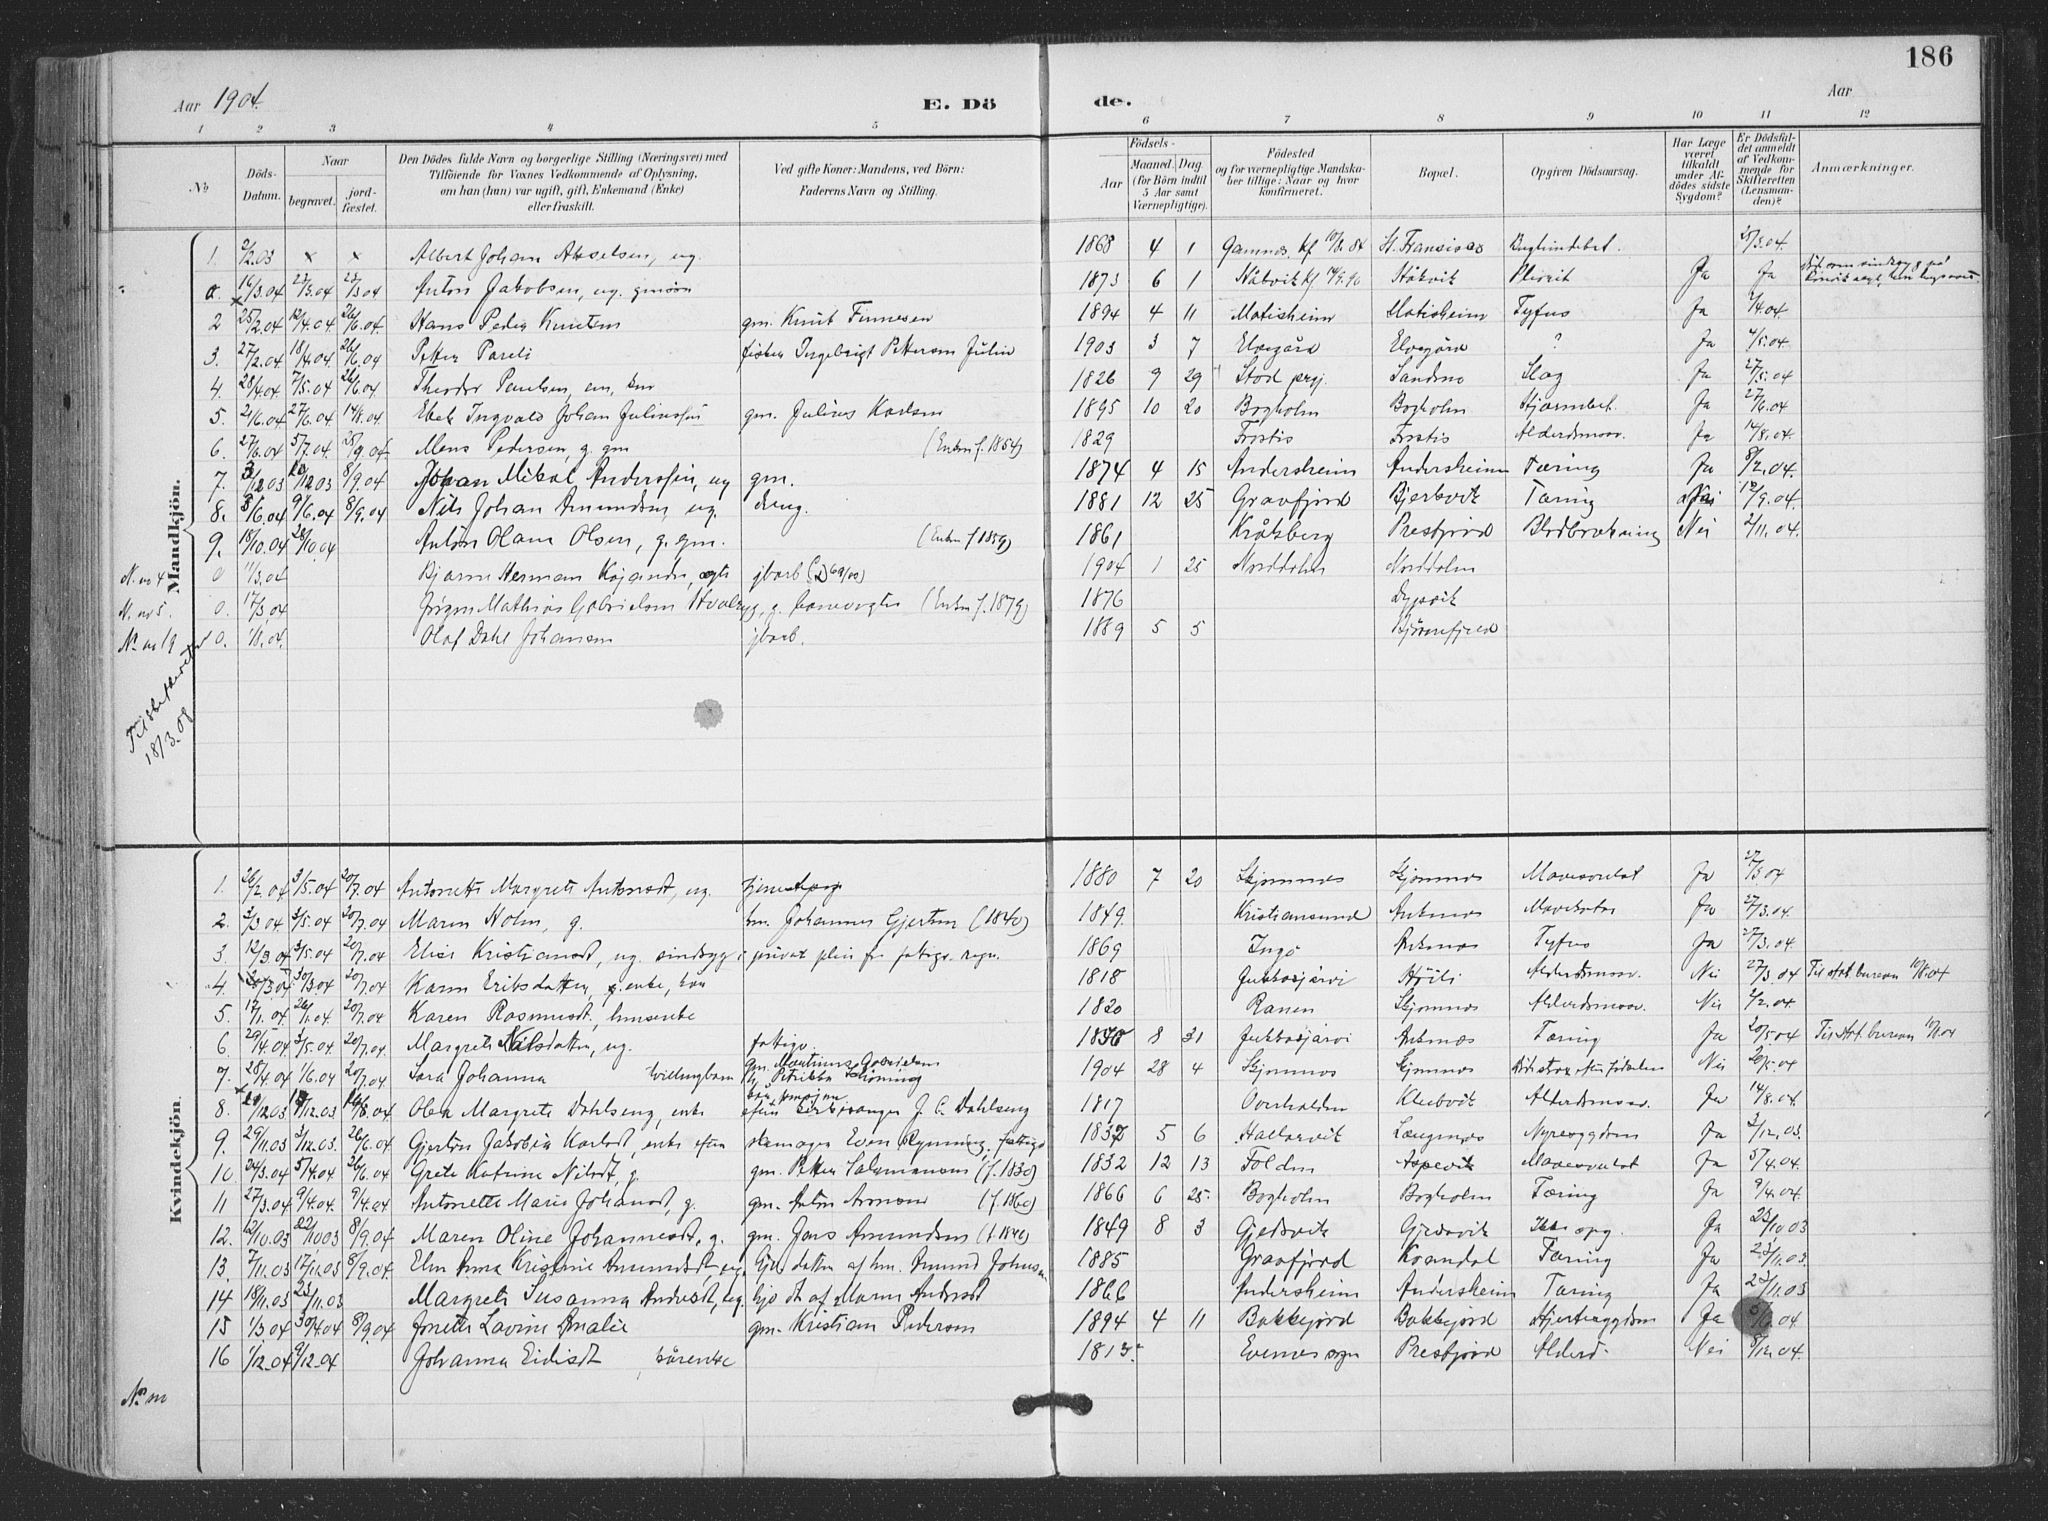 186
Aar 1904.
E. Dö
de.
Aar
1 2 3 4 5 6 7 8 9 10 11 12
No
Döds-Datum.
Naar
begravet.
jord-fæstet.
Den Dödes fulde Navn og borgerlige Stilling (Næringsvei) med
Tilföiende for Voxnes Vedkommende af Oplysning,
om han (hun) var ugift, gift, Enkemand (Enke)
eller fraskilt.
Ved gifte Koner: Mandens, ved Börn:
Faderens Navn og Stilling.
Födsels-
Aar
Maaned. Dag.
(for Börn indtil
5 Aar samt
Værnepligtige).
Födested
og for værnepligtige Mandska-
ber tillige: Naar og hvor
konfirmeret.
Bopæl.
Opgiven Dödsaarsag.
Har Læge
været
tilkaldt
under Af-
dödes sidste
Sygdom?
Er Dödsfal-
det anmeldt
af Vedkom-
mende for
Skifteretten
(Lensman-
den)?
Anmærkninger.
Mandkjön.
1. 2/2.03 × × Albert Johan Akselsen, ug. 1868 4 1 Gamnes St. Fransisco 25/3.04
a. 16/3.04 23/3.04 23/3.04 Anton Jakobsen, ug. 1873 6 1 Ståkvik Ja Ja
2 25/2.04 12/4.04 26/6.04 Hans Peder Knutsen gm. Knut Finnesen 1894 4 11 Matisheim Matisheim Tyfus Ja 7/4.04
3. 27/2.04 18/4.04 26/6.04 Petter Pareli fisker Ingebrigt Pettersen Julin 1903 3 7 Elvegård Elvegård ? Ja 4/5.04
4. 28/4.04 7/5.04 26/6.04 Theodor Paulsen, em, 1826 9 29 Stod prgj. Sandmo Slag Ja 27/5.04
5. 21/6.04 27/6.04 14/8.04 Ebek Ingvald Johan Juliussen gm. Julius Karlsen 1895 10 20 Bogholm Bogholm Ja 27/6.04
6. 27/6.04 5/7.04 25/9.04 Mons Pedersen, g. gm (Enkm f. 1854) 1829 Frostis Frostis Ja 14/8.04
7. 3/12.03 20/12.03 8/9.04 Johan Mikal Anderssen, ug gm. 1874 4 15 Andersheim Andersheim Tæring Ja 8/2.04.
8. 8/6.04 9/6.04 8/9.04 Nils Johan Amundsen, ug. dreng. 1881 12 25 Gravfjord Bjerkvik Tæring Nei 12/9.04.
9. 18/10.04 28/10.04 Anton Olaus Olsen, g. gm. (Enkm f 1859) 1861 Kråkberg Presfjord Blodbrækning Nei 2/11.04.
N. no 4 0 11/3.04 Bjarne Herman jbarb 1904 1 25 Norddalen Norddalen
N. no 5. 0. 17/3.04 Jørgen Mathias Gabrielsen g. banevogter (Enkm f. 1879) 1876 Dypvik
N. no 19 0. 1/8.04. Olaf Dahl Johansen jbarb. 1889 5 5 Bjørnefjeld
18/3.08
Kvindekjön.
1. 26/2.04 3/5.04 20/7.04 Antonette Margrete Antonsdt, ug. 1880 7 20 Skjomnes Skjomnes Mavesvulst Ja 27/3.04
2. 3/3.04. 3/5.04 20/7.04 Maren Holm, g. hm. Johannes Gjertsen (1840) 1849. Kristiansund Ankenes Ja 27/3.04.
3. 12/3.04 3/5.04 20/7.04 Elise Kristiansdt, ug. sindssyg i privat pleie for fattigv. regn. 1869 Ingø Ankenes Tyfus Ja 27/3.04
4. 20/3.04 30/3.04 20/7.04 Karen Eriksdatter, enke, 1818 Jukkasjärvi Alderdomssv. Nei 27/3.04 Til stat.bureau 10/8.04
5. 17/1.04 26/1.04 20/7.04 Karen Rasmusdt, hmsenke 1820 Ranen Skjomnes Alderdomssv. Nei 2/2.04
6. 29/4.04 3/5.04. 20/7.04 Margrete Nilsdatter, ug. fattigv. 8 31 Jukkasjärvi Ankenes Tæring Ja 20/5.04 Til stat.bureau 10/8.04
7. 28/4.04 1/6.04 20/7.04 Sara Johanna tvillingbarn gm. Martinus Gabrielsen 1904 28 4 Skjomnes Skjomnes Nei 20/5.04
8. 12.03 12.03 8.04 Olea Margrete Dahlseng, enke efter kirkesanger J. C. Dahlseng 1817 Overhalden Kleibvik Alderdomssv. Ja 14/8.04.
9. 29/11.03 3/12.03. 26/6.04 Gjertine Jakobia Karlsdt, enke efter Even 1837 5 6 Hallarvik Længenes Nyresygdom Ja 2/12.03.
10 24/3.04 5/4.04 26/6.04 Grete Katrine Nilsdt, g. gm. Petter Salamonsen (f. 1830) 1832 12 13 Folden Aspevik Mavesvulst Ja 5/4.04.
11 27/3.04 9/4.04. 9/4.04 Antonette Marie Johansdt, g. gm. Anton Arnesen (f. 1860) 1866 6 25. Bogholm Bogholm Tæring Ja 9/4.04.
12. 12/10.03 22/10.03 8/9.04 Maren Oline Johannesdt, g. gm. Jens Amundsen 1849 8 3 Gjedsvik Gjedsvik Ikke opg. Ja 23/10.03
13. 7/11.03 17/11.03 8/9.04. Elen Anna Kristine Amundsdt, ug. datter af hm. Amund Johnsen 1885 Gravfjord Kvandal Tæring Ja 23/11.03.
14 18/11.03 23/11.03 Margrete Susanna Andersdt, ug. dt af Maren Andersdt 1866 Andersheim Andersheim Tæring Ja 23/11.03
15 1/3.04 30/4.04 8/9.04 Jonette Lavine Amalie gm. Kristian Pedersen 1894 4 11 Bakkejord Bakkejord Hjertesygdom Ja 6.04
16 1/12.04 9/12.04 Johanna Eidisdt kårenke 1813. Evenes sogn Presfjord Alderd. Nei 8/12.04.